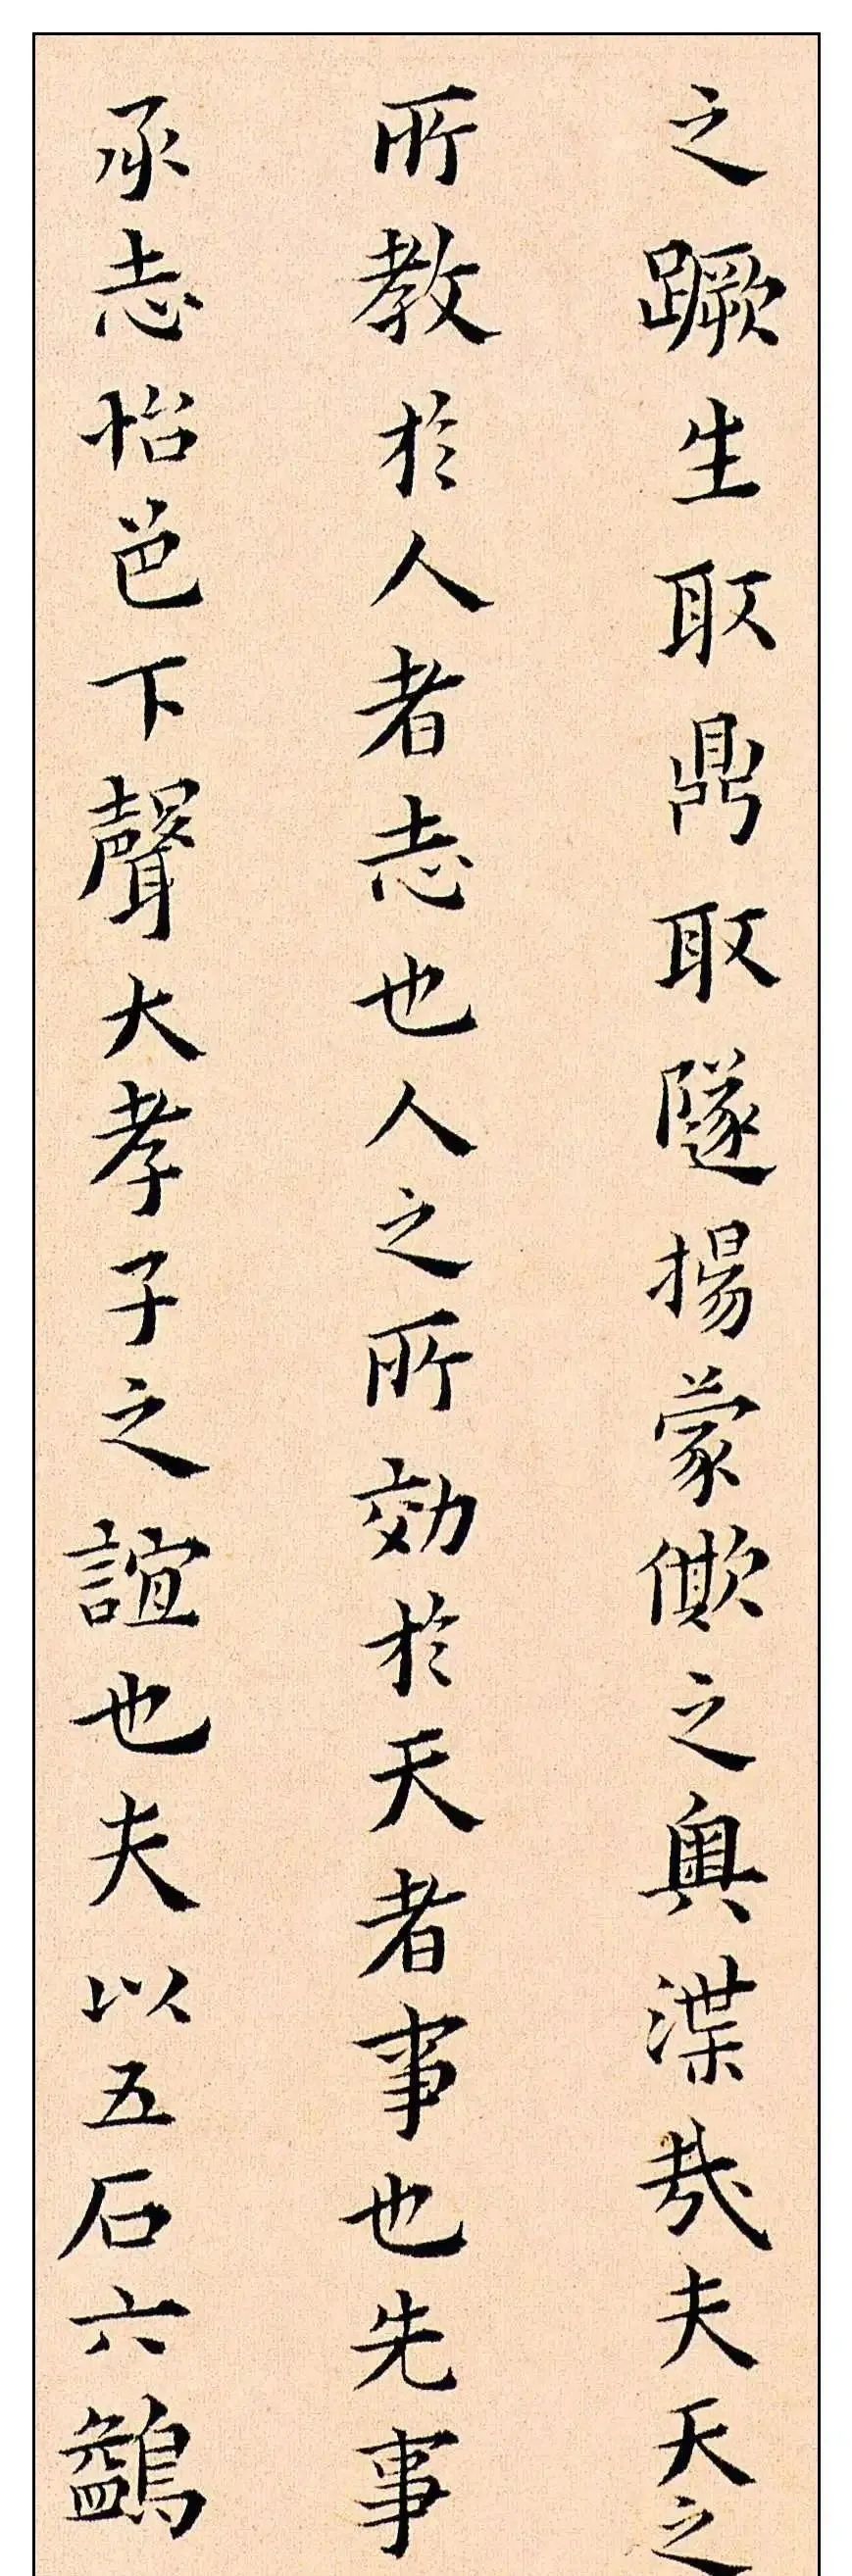 之蹶生取鼎取隧揚蒙僛之奧渫哉夫天之
所教於人者志也人之所効於天者事也先事
承志怡色下聲大孝子之誼也夫以五石六鷁